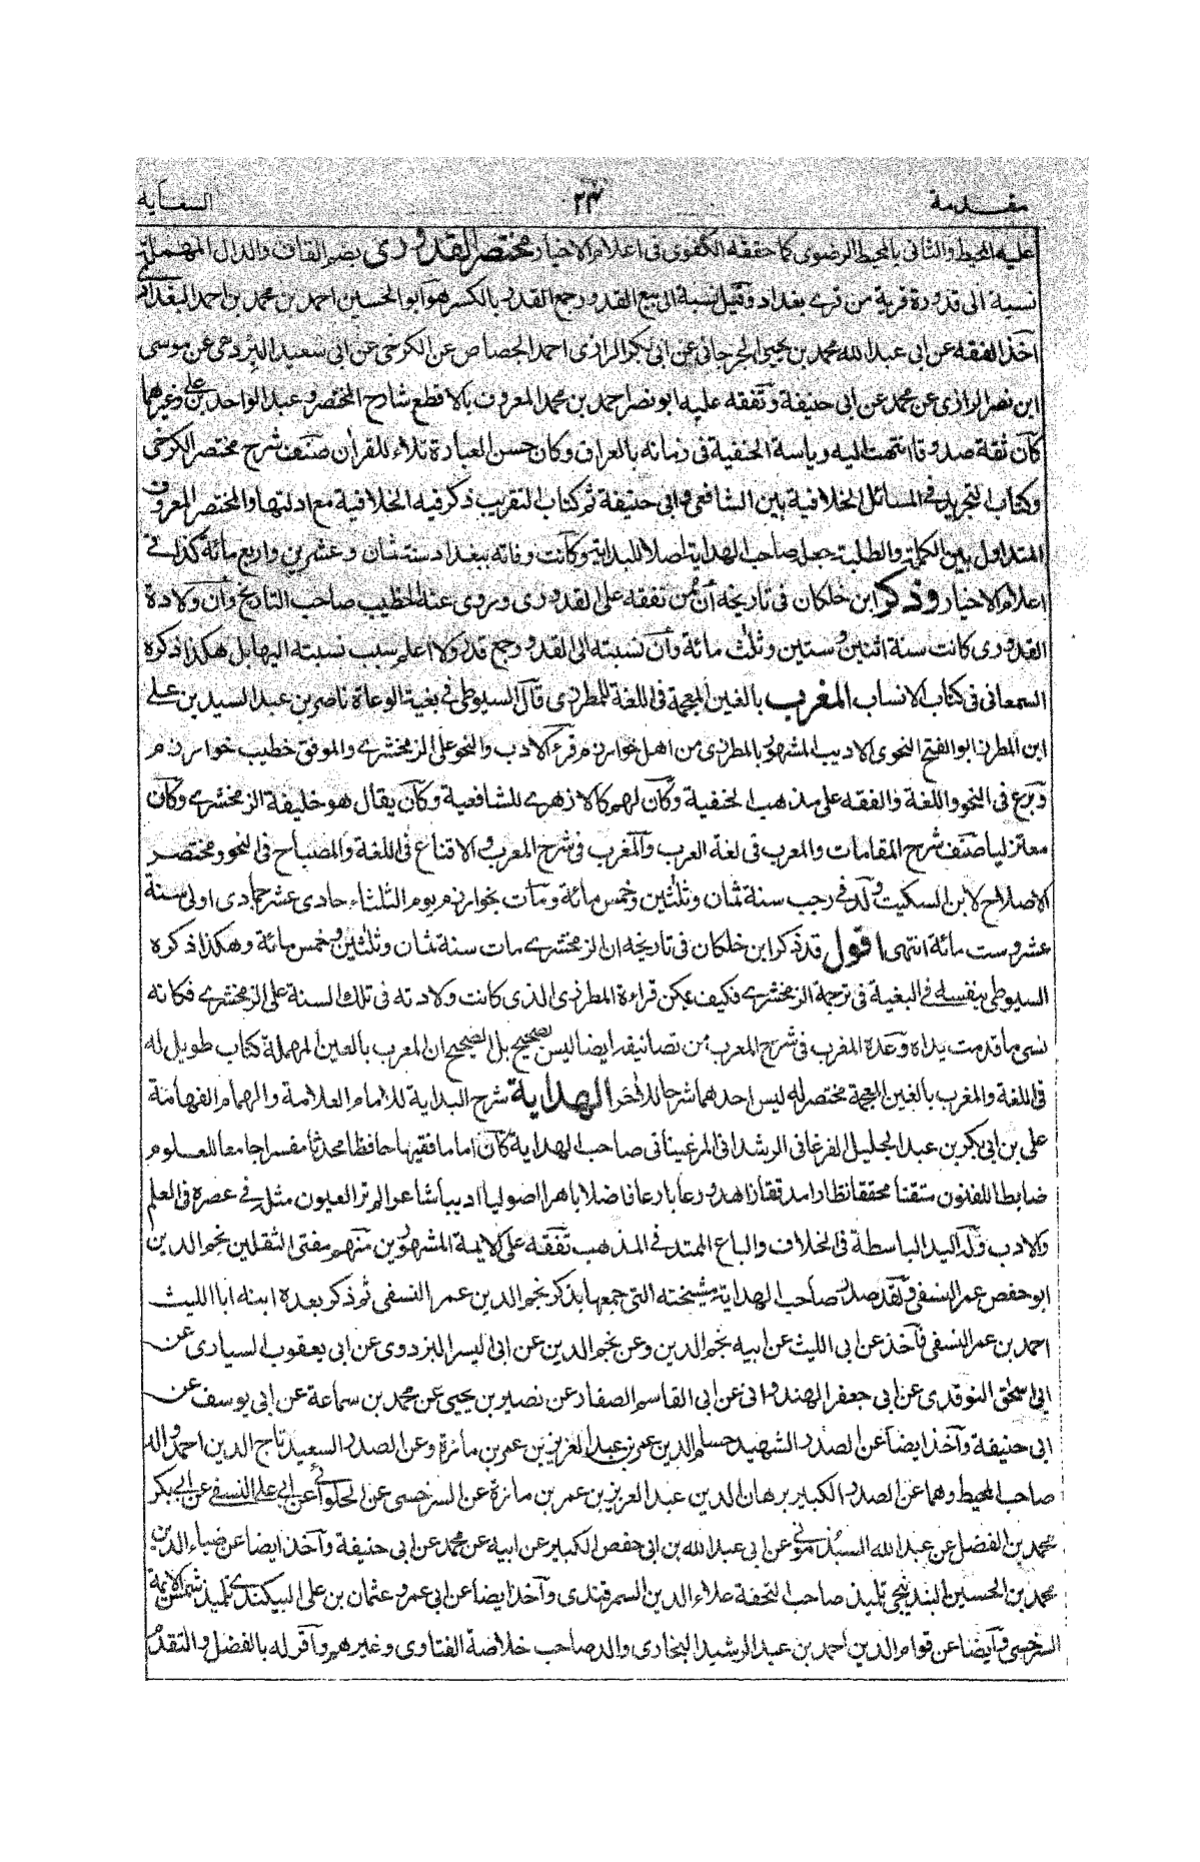 مقدمة ٢٣ السعاية
عليه المحيط والثاني بالمحيط الرضوي كما حققه الكفوي في اعلام الاخيار مختصر القدوري بضم القاف والدال المهملة
نسبة الى قدورة قرية من قرى بغداد وقيل نسبة الى بيع القدور جمع القدر بالكسر هو ابو الحسين احمد بن محمد بن احمد البغدادي
اخذ الفقه عن ابي عبد الله محمد بن يحيى الجرجاني عن ابي بكر الرازي احمد الجصاص عن الكرخي عن ابي سعيد البردعي عن موسى
ابن نصر الرازي عن محمد عن ابي حنيفة وتفقه عليه ابو نصر احمد بن محمد المعروف بالاقطع شارح المختصر وعبد الواحد بن علي وغيرهما
كان ثقة صدوقا انتهت اليه رياسة الحنفية في زمانه بالعراق وكان حسن العبارة تلاء للقران صنف شرح مختصر الكرخي
وكتاب التجريد في المسائل الخلافية بين الشافعي وابي حنيفة ثم كتاب التقريب ذكر فيه الخلافية مع ادلتها والمختصر المعروف
المتداول بين الكملة والطلبة جعل صاحب الهداية اصلا للبداية وكانت وفاته ببغداد سنة ثمان وعشرين واربع مائة كذا في
اعلام الاخيار وذكر ابن خلكان في تاريخه ان ممن تفقه على القدوري وروى عنه الخطيب صاحب التاريخ وان ولادة
القدوري كانت سنة اثنين وستين وثلث مائة وان نسبته الى القدور جمع قدر ولا اعلم سبب نسبته اليها بل هكذا ذكره
السمعاني في كتاب الانساب المغرب بالغين المعجمة في اللغة للمطرزي قال السيوطي في بغية الوعاة ناصر بن عبد السيد بن علي
ابن المطرز ابو الفتح النحوي الاديب المشهور بالمطرزي من اهل خوارزم قرء الادب والنحو على الزمخشري والموفق خطيب خوارزم
وبرع في النحو واللغة والفقه على مذهب الحنفية وكان لهم كالازهري للشافعية وكان يقال هو خليفة الزمخشري وكان
معتزليا صنف شرح المقامات والمعرب في لغة العرب والمغرب في شرح المعرب والاقناع في اللغة والمصباح في النحو ومختصر
الاصلاح لابن السكيت ولد في رجب سنة ثمان وثلثين وخمس مائة ومات بخوارزم يوم الثلثاء حادي عشر جمادى اولى سنة
عشر وست مائة انتهى اقول قد ذكر ابن خلكان في تاريخه ان الزمخشري مات سنة ثمان وثلثين وخمس مائة وهكذا ذكره
السيوطي بنفسه في البغية في ترجمة الزمخشري فكيف يمكن قراءة المطرزي الذي كانت ولادته في تلك السنة على الزمخشري فكانه
نسي ما قدمت يداه وعده المغرب في شرح المعرب من تصانيفه ايضا ليس بصحيح بل الصحيح ان المعرب بالعين المهملة كتاب طويل له
في اللغة والمغرب بالغين المعجمة مختصر له ليس احدهما شرحا للاخر الهداية شرح البداية للامام العلامة والهمام الفهامة
علي بن ابي بكر بن عبد الجليل الفرغاني الرشداني المرغيناني صاحب الهداية كان اماما فقيها حافظا محدثا مفسرا جامعا للعلوم
ضابطا للفنون متقنا محققا نظارا مدققا زاهدا ورعا بارعا فاضلا باهرا اصوليا اديبا شاعرا لم تر العيون مثله في عصره في العلم
والادب وله اليد الباسطة في الخلاف والباع الممتد في المذهب تفقه على الايمة المشهورين منهم مفتي الثقلين نجم الدين
ابو حفص عمر النسفي ولقد صدر صاحب الهداية مشيخته التي جمعها بذكر نجم الدين عمر النسفي ثم ذكر بعده ابنه ابا الليث
احمد بن عمر النسفي فاخذ عن ابي الليث عن ابيه نجم الدين وعن نجم الدين عن ابي اليسر البزدوي عن ابي يعقوب السياري عن
ابي اسحق النوقدي عن ابي جعفر الهندواني عن ابي القاسم الصفار عن نصير بن يحيى عن محمد بن سماعة عن ابي يوسف عن
ابي حنيفة واخذ ايضا عن الصدر الشهيد حسام الدين عمر بن عبد العزيز بن عمر بن مازة وعن الصدر السعيد تاج الدين احمد والد
صاحب المحيط وهما عن الصدر الكبير برهان الدين عبد العزيز بن عمر بن مازة عن السرخسي عن الحلوائي عن ابي علي النسفي عن ابي بكر
محمد بن الفضل عن عبد الله السبذموني عن ابي عبد الله بن ابي حفص الكبير عن ابيه عن محمد عن ابي حنيفة واخذ ايضا عن ضياء الدين
محمد بن الحسين البندنيجي تلميذ صاحب التحفة علاء الدين السمرقندي واخذ ايضا عن ابي عمرو عثمان بن علي البيكندي تلميذ شمس الايمة
السرخسي وايضا عن قوام الدين احمد بن عبد الرشيد البخاري والد صاحب خلاصة الفتاوى وغيرهم واقر له بالفضل والتقدم